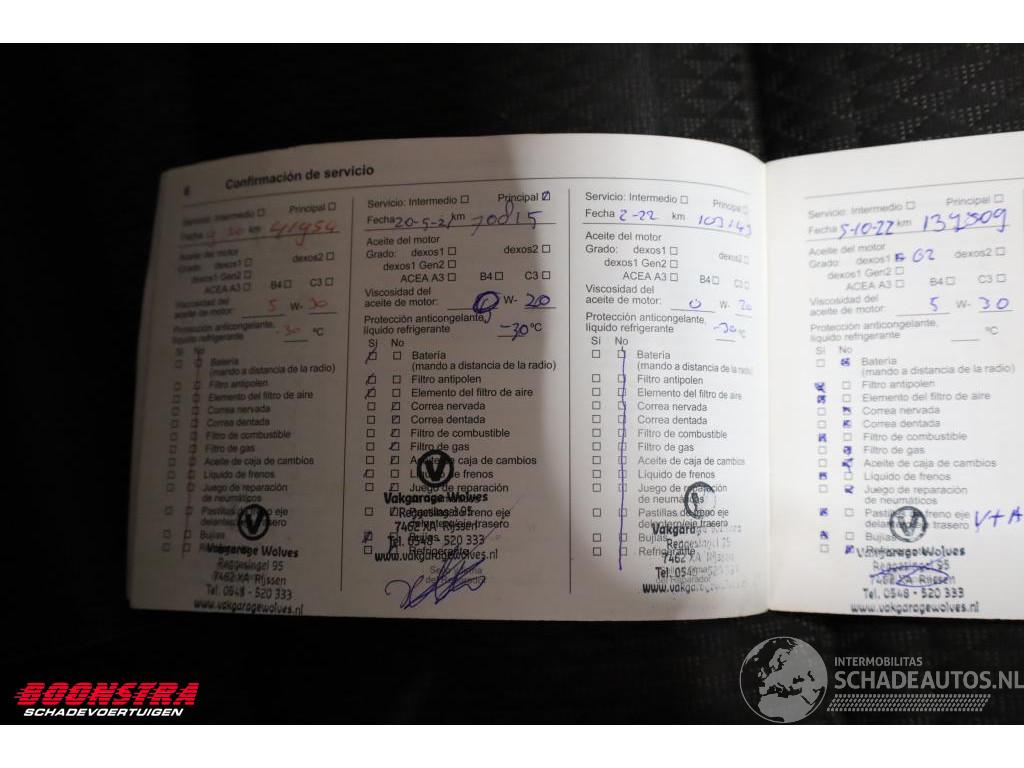 6 Confirmación de servicio
Servicio: Intermedio Principal
Fecha 20 41954 km
Aceite del motor
Grado: dexos1 dexos2
dexos1 Gen2
ACEA A3 B4 C3
Viscosidad del
aceite de motor: 5 W- 30
Protección anticongelante,
líquido refrigerante -30 °C
Sí No
Batería
(mando a distancia de la radio)
Filtro antipolen
Elemento del filtro de aire
Correa nervada
Correa dentada
Filtro de combustible
Filtro de gas
Aceite de caja de cambios
Líquido de frenos
Juego de reparación
de neumáticos
Pastillas de freno eje
delantero/eje trasero
Bujías
Vakgarage Wolves
Reggesingel 95
7462 XA Rijssen
Tel. 0548 - 520 333
www.vakgaragewolves.nl
Servicio: Intermedio Principal
Fecha 20-5-21 km 70815
Aceite del motor
Grado: dexos1 dexos2
dexos1 Gen2
ACEA A3 B4 C3
Viscosidad del
aceite de motor: 0 W- 20
Protección anticongelante,
líquido refrigerante -30 °C
Sí No
Batería
(mando a distancia de la radio)
Filtro antipolen
Elemento del filtro de aire
Correa nervada
Correa dentada
Filtro de combustible
Filtro de gas
Aceite de caja de cambios
Líquido de frenos
Juego de reparación
Vakgarage Wolves
Reggesingel 95
7462 XA Rijssen
delantero/eje trasero
Tel. 0548 - 520 333
Bujías
Refrigerante
www.vakgaragewolves.nl
Servicio: Intermedio Principal
Fecha 2-22 km 103143
Aceite del motor
Grado: dexos1 dexos2
dexos1 Gen2
ACEA A3 B4 C3
Viscosidad del
aceite de motor: 0 W- 20
Protección anticongelante,
líquido refrigerante -30 °C
Sí No
Batería
(mando a distancia de la radio)
Filtro antipolen
Elemento del filtro de aire
Correa nervada
Correa dentada
Filtro de combustible
Filtro de gas
Aceite de caja de cambios
Líquido de frenos
Juego de reparación
de neumáticos
Pastillas de freno eje
delantero/eje trasero
Vakgarage
Bujías Reggesingel 95
Refrigerante
7462 XA Rijssen
Tel. 0548 520 333
www.vakgaragewolves.nl
Servicio: Intermedio Principal
Fecha 5-10-22 km 139509
Aceite del motor
Grado: dexos1 G2 dexos2
dexos1 Gen2
ACEA A3 B4 C3
Viscosidad del
aceite de motor: 5 W- 30
Protección anticongelante,
líquido refrigerante °C
Sí No
Batería
(mando a distancia de la radio)
Filtro antipolen
Elemento del filtro de aire
Correa nervada
Correa dentada
Filtro de combustible
Filtro de gas
Aceite de caja de cambios
Líquido de frenos
Juego de reparación
de neumáticos
Pastillas de freno eje
delantero/eje trasero V+A
Bujías
Refrigerante
Vakgarage Wolves
Reggesingel 95
7462 XA Rijssen
Tel. 0548 - 520 333
www.vakgaragewolves.nl
BOONSTRA
SCHADEVOERTUIGEN
INTERMOBILITAS
SCHADEAUTOS.NL